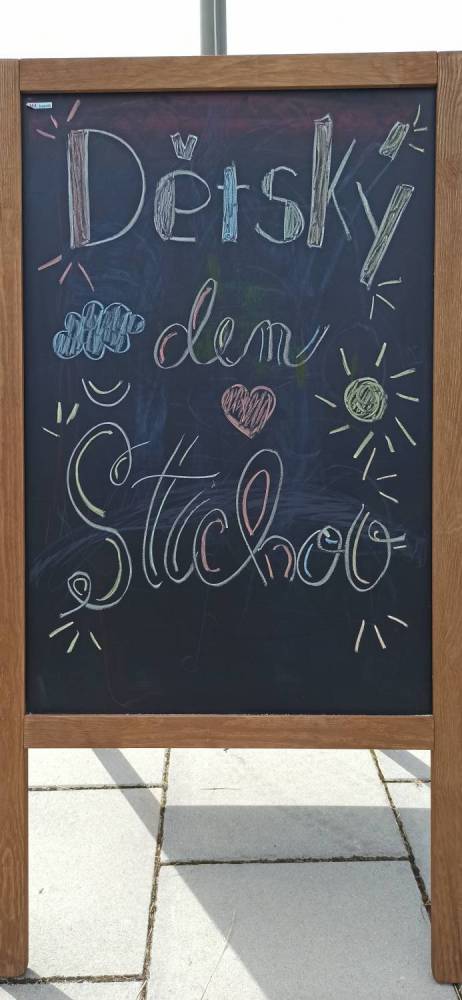 Dětský
den
Štichov